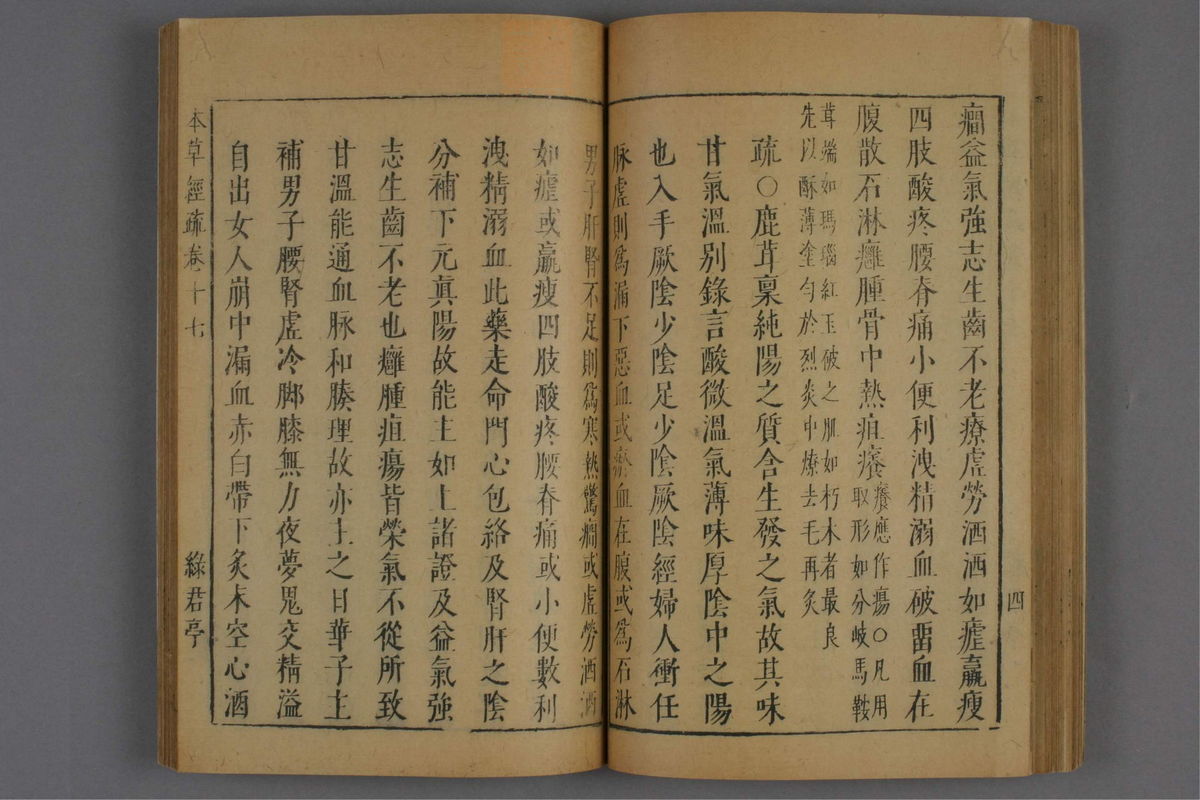 四
癇益氣強志生齒不老療虛勞洒洒如瘧羸瘦
四肢酸疼腰脊痛小便利洩精溺血破㽞血在
腹散石淋癰腫骨中熱疽癢癢應作瘍○凡用
取形如分岐馬鞍
茸端如瑪瑙紅玉破之肌如朽木者最良
先以酥薄塗勻於烈炎中燎去毛再炙
疏○鹿茸稟純陽之質含生發之氣故其味
甘氣溫別錄言酸微溫氣薄味厚陰中之陽
也入手厥陰少陰足少陰厥陰經婦人衝任
脉虛則爲漏下惡血或瘀血在腹或爲石淋
男子肝腎不足則爲寒熱驚癇或虛勞洒洒
如瘧或羸瘦四肢酸疼腰脊痛或小便數利
洩精溺血此藥走命門心包絡及腎肝之陰
分補下元眞陽故能主如上諸證及益氣強
志生齒不老也癰腫疽瘍皆榮氣不從所致
甘溫能通血脉和腠理故亦主之日華子主
補男子腰腎虛冷脚膝無力夜夢鬼交精溢
自出女人崩中漏血赤白帶下炙末空心酒
本草經疏卷十七
綠君亭